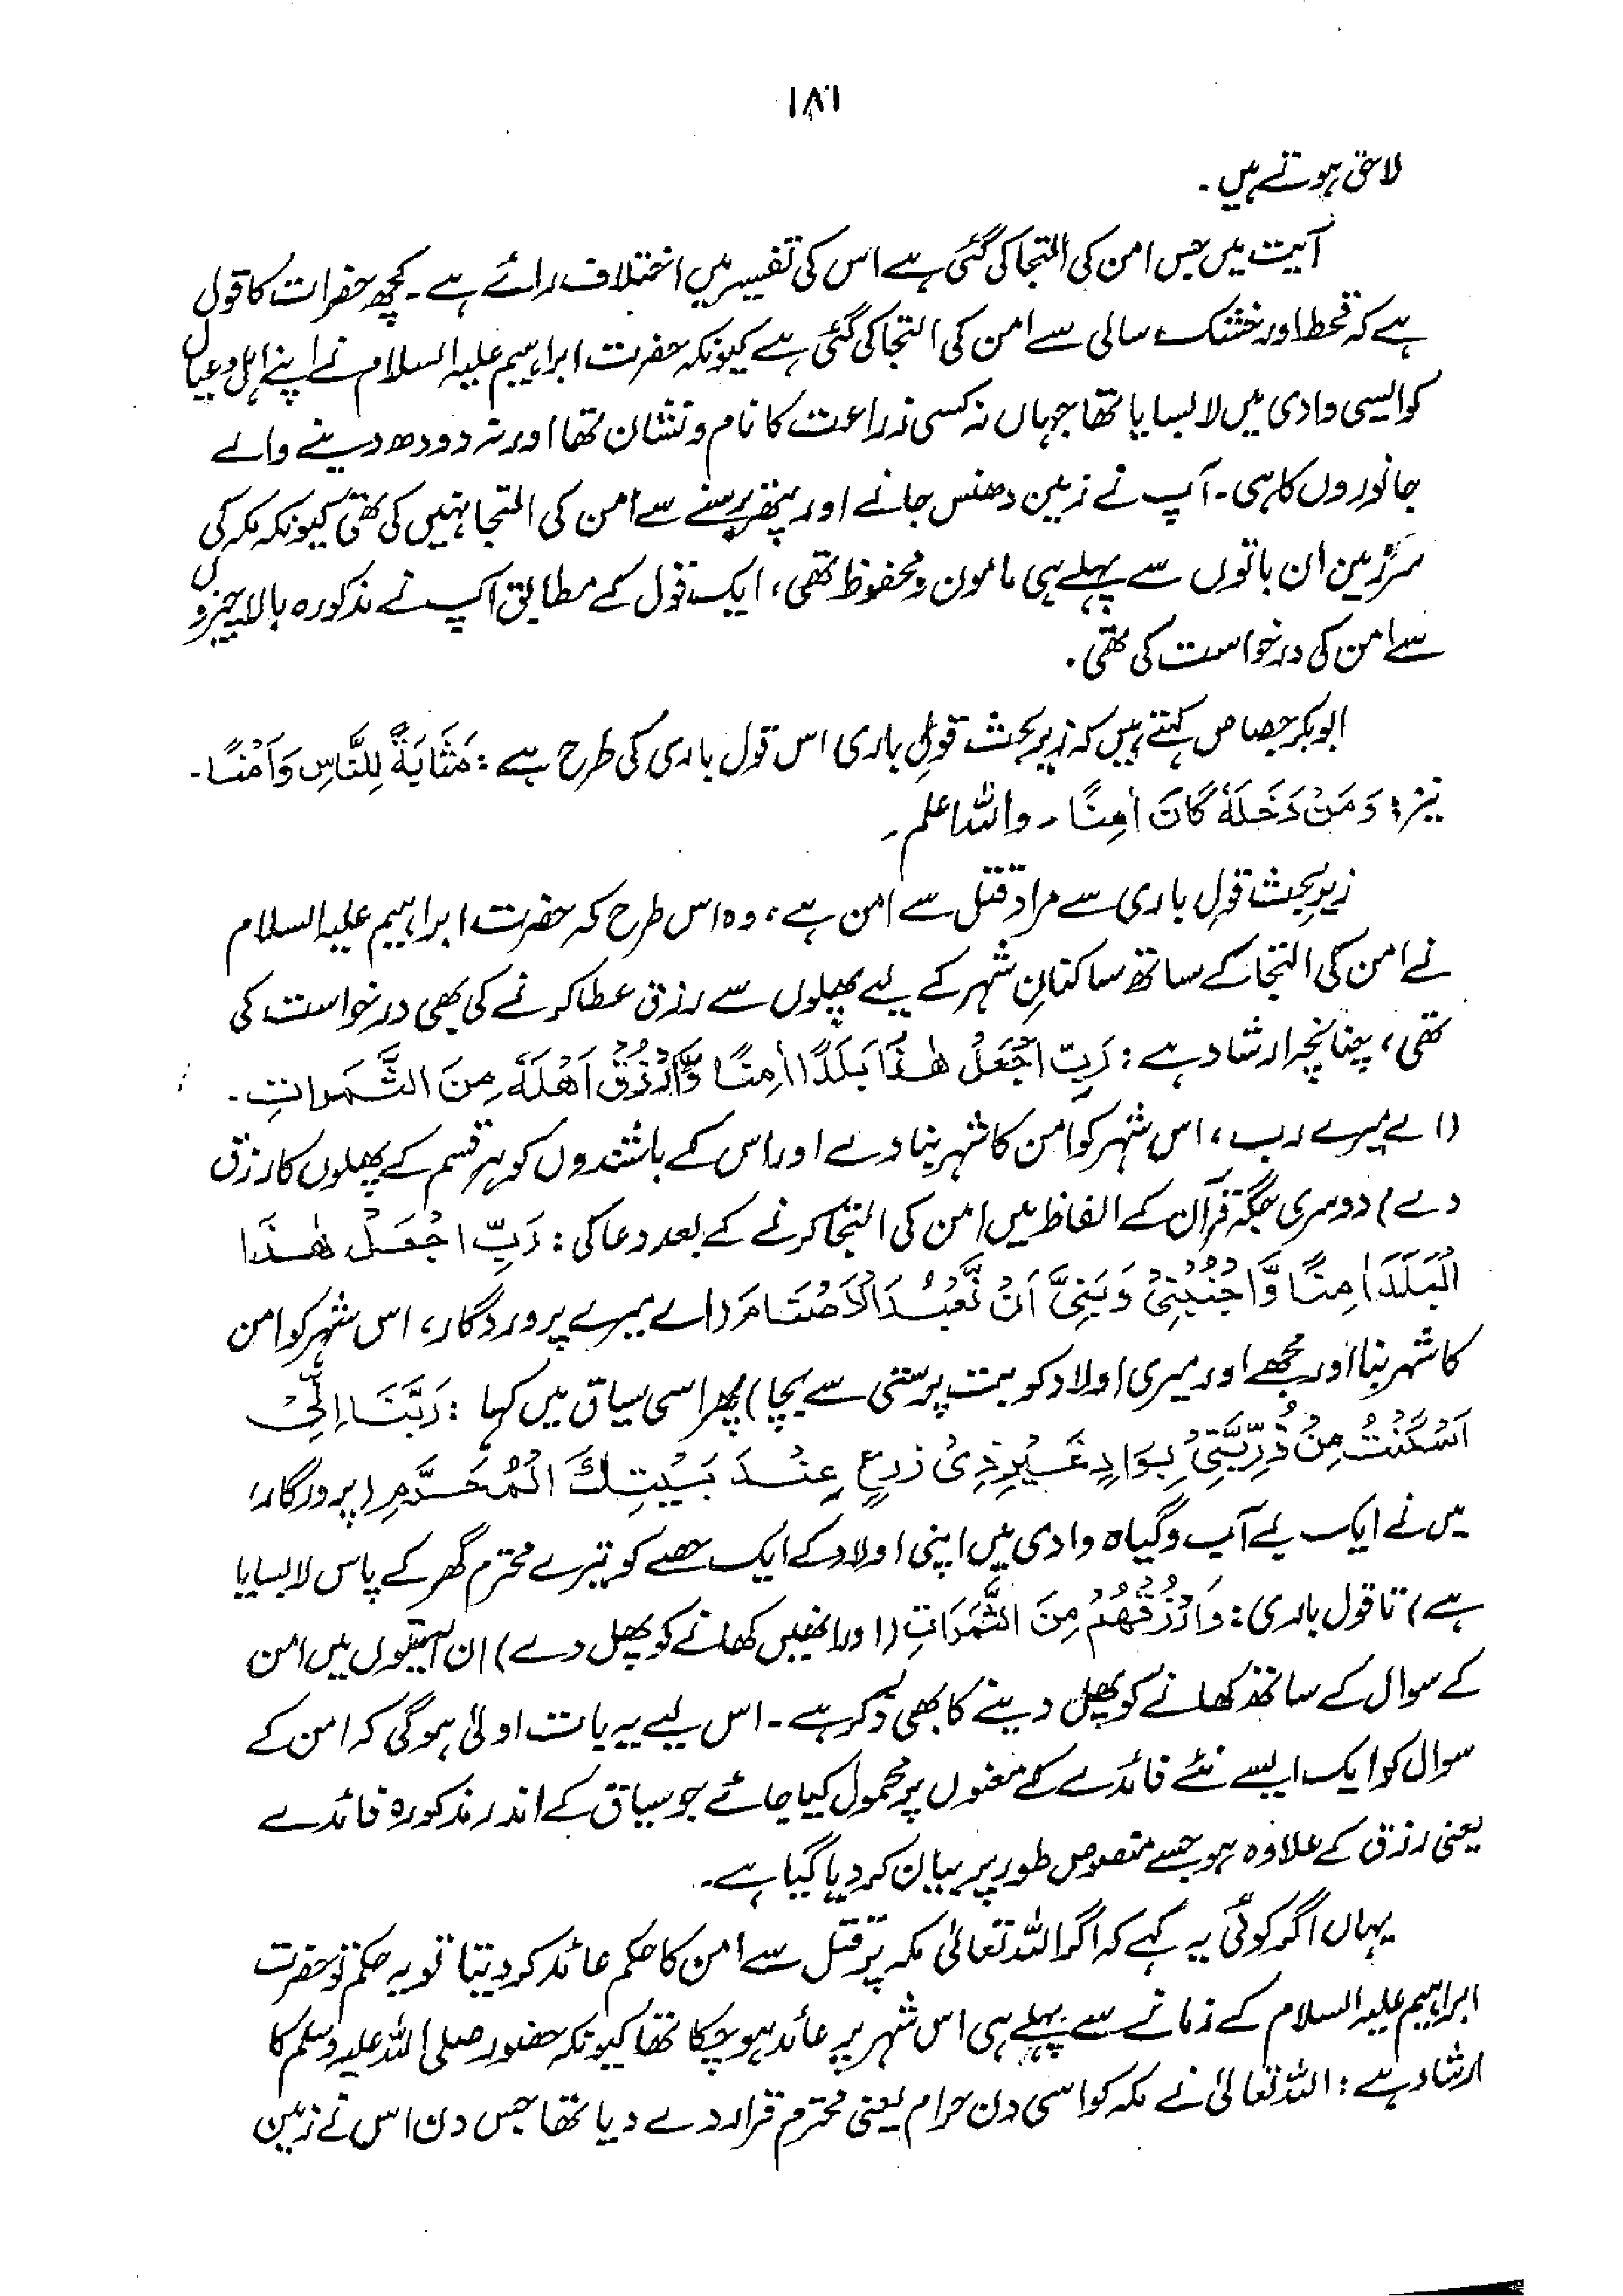 ۱۸۶
لاحق ہوتے ہیں۔
آیت میں جس امن کی التجا کی گئی ہے اس کی تفسیر میں اختلاف رائے ہے۔ کچھ حضرات کا قول
ہے کہ قحط اور خشک سالی سے امن کی التجا کی گئی ہے کیونکہ حضرت ابراہیم علیہ السلام نے اپنے اہل و عیال
کو ایسی وادی میں لا بسایا تھا جہاں نہ کسی زراعت کا نام و نشان تھا اور نہ دودھ دینے والے
جانوروں کا ہی۔ آپ نے زمین دھنس جانے اور پتھر برسنے سے امن کی التجا نہیں کی تھی کیونکہ مکہ کی
سرزمین ان باتوں سے پہلے ہی مامون و محفوظ تھی، ایک قول کے مطابق آپ نے مذکورہ بالا چیزوں
سے امن کی درخواست کی تھی۔
ابوبکر جصاص کہتے ہیں کہ زیر بحث قولِ باری اس قول باری کی طرح ہے: مَثَابَةً لِلنَّاسِ وَاَمْنًا۔
نیز: وَمَنْ دَخَلَهٗ كَانَ اٰمِنًا۔ واللہ اعلم۔
زیرِ بحث قول باری سے مراد قتل سے امن ہے، وہ اس طرح کہ حضرت ابراہیم علیہ السلام
نے امن کی التجا کے ساتھ ساکنانِ شہر کے لیے پھلوں سے رزق عطا کرنے کی بھی درخواست کی
تھی، چنانچہ ارشاد ہے: رَبِّ اجْعَلْ هٰذَا بَلَدًا اٰمِنًا وَّارْزُقْ اَهْلَهٗ مِنَ الثَّمَرَاتِ۔
(اے میرے رب، اس شہر کو امن کا شہر بنا دے اور اس کے باشندوں کو ہر قسم کے پھلوں کا رزق
دے) دوسری جگہ قرآن کے الفاظ میں امن کی التجا کرنے کے بعد دعا کی: رَبِّ اجْعَلْ هٰذَا
الْبَلَدَ اٰمِنًا وَّاجْنُبْنِیْ وَبَنِیَّ اَنْ نَّعْبُدَ الْاَصْنَامَ (اے میرے پروردگار، اس شہر کو امن
کا شہر بنا اور مجھے اور میری اولاد کو بت پرستی سے بچا) پھر اسی سیاق میں کہا: رَبَّنَا اِنِّیْ
اَسْكَنْتُ مِنْ ذُرِّیَّتِیْ بِوَادٍ غَیْرِ ذِیْ زَرْعٍ عِنْدَ بَیْتِكَ الْمُحَرَّمِ (پروردگار،
میں نے ایک بے آب و گیاہ وادی میں اپنی اولاد کے ایک حصے کو تیرے محترم گھر کے پاس لا بسایا
ہے) تا قول باری: وَارْزُقْهُمْ مِنَ الثَّمَرَاتِ (اور انھیں کھانے کو پھل دے) ان آیتوں میں امن
کے سوال کے ساتھ کھانے کو پھل دینے کا بھی ذکر ہے۔ اس لیے یہ بات اولیٰ ہوگی کہ امن کے
سوال کو ایک ایسے نئے فائدے کے معنوں پر محمول کیا جائے جو سیاق کے اندر مذکورہ فائدے
یعنی رزق کے علاوہ ہو جسے منصوص طور پر بیان کر دیا گیا ہے۔
یہاں اگر کوئی یہ کہے کہ اگر اللہ تعالیٰ مکہ پر قتل سے امن کا حکم عائد کر دیتا تو یہ حکم تو حضرت
ابراہیم علیہ السلام کے زمانے سے پہلے ہی اس شہر پر عائد ہو چکا تھا کیونکہ حضور صلی اللہ علیہ وسلم کا
ارشاد ہے: اللہ تعالیٰ نے مکہ کو اسی دن حرام یعنی محترم قرار دے دیا تھا جس دن اس نے زمین